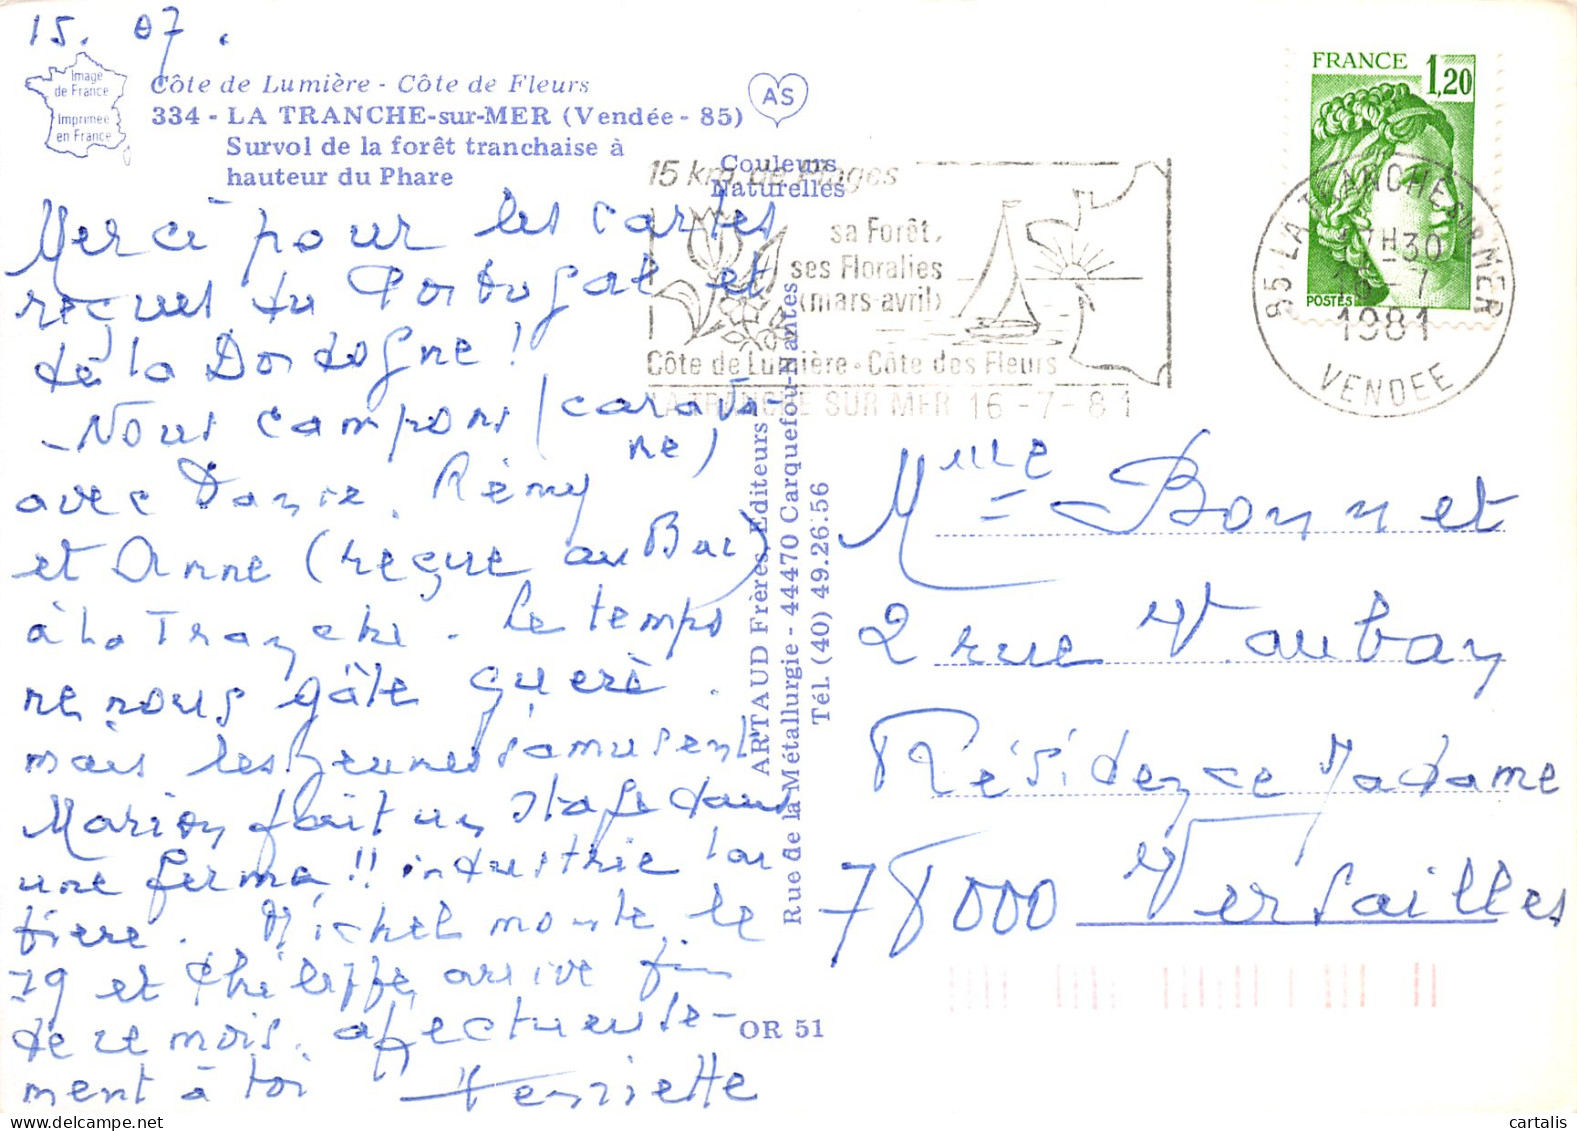 15. 07.
Image
de France
Imprimée
en France
Côte de Lumière - Côte de Fleurs
334 - LA TRANCHE-sur-MER (Vendée - 85)
Survol de la forêt tranchaise à
hauteur du Phare
AS
Couleurs
Naturelles
FRANCE
1,20
POSTES
15 km de Plages
sa Forêt,
ses Floralies
(mars-avril)
Côte de Lumière - Côte des Fleurs
LA TRANCHE SUR MER 16 - 7 - 8 1
85 LA TRANCHE SUR MER
H30
16 - 7
1981
VENDEE
Merci pour les cartes
reçues du Portugal et
de la Dordogne !
- Nous campons (carava-
ne)
avec Rémy
et Anne (reçue au Bac)
à la Tranche. Le temps
ne nous gâte guerè.
mais les jeunes s'amusent
Marion fait un stage dans
une ferme !! industrie lai
tiere. Michel monte le
19 et Philippe arrive fin
de ce mois. afectueuse-
ment à toi Henriette
ARTAUD Frères Editeurs
Rue de la Métallurgie - 44470 Carquefou-Nantes
Tél. (40) 49.26.56
OR 51
Mme Bonnet
2 rue Vauban
Résidence Madame
78000 Versailles
cartalis